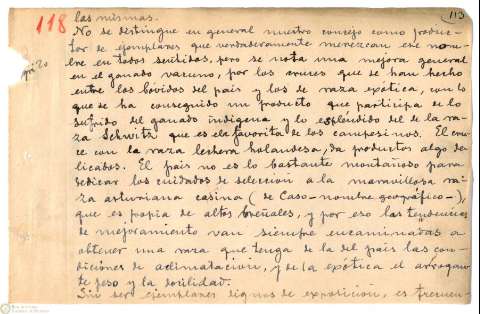 118
113
las mismas.
No se distingue en general nuestro concejo como produc-
tor de ejemplares que verdaderamente merezcan ese nom-
bre en todos sentidos, pero se nota una mejora general
en el ganado vacuno, por los cruces que se han hecho
entre los bóvidos del país y los de raza exótica, con lo
que se ha conseguido un producto que participa de lo
sufrido del ganado indígena y lo espléndido del de la ra-
za Schwitz que es la favorita de los campesinos. El cru-
ce con la raza lechera holandesa, da productos algo de-
licados. El país no es lo bastante montañoso para
dedicar los cuidados de selección a la maravillosa ra-
za asturiana casina (de Caso-nombre geográfico-),
que es propia de altos breñales, y por eso las tendencias
de mejoramiento van siempre encaminadas a
obtener una raza que tenga de la del país las con-
diciones de aclimatación, y de la exótica el arrogan-
te peso y la docilidad.
Sin ser ejemplares dignos de exposición, es frecuen-